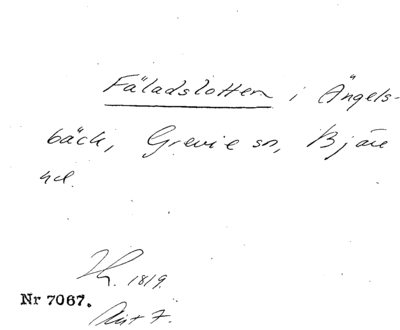 Fäladslotten i Ängels-
bäck, Grevie sn, Bjäre
hd.
1819.
Nr 7067.